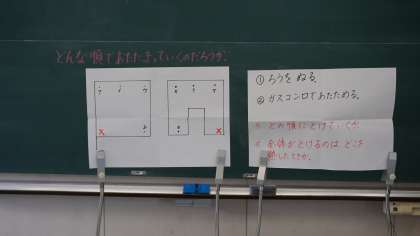 どんな順であたたまっていくのだろうか。
ア イ ウ
×
×
① ろうをぬる。
② ガスコンロであたためる。
どの順にとけていくか。
全体がとけるのは、どこを
熱したときか。